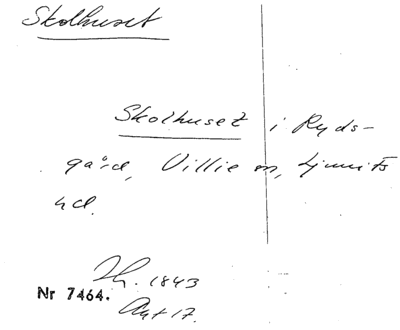 Skolhuset
Skolhuset i Ryds-
gård, Villie sn, Ljunits
hd.
Th. 1843
Nr 7464.
Akt 17.